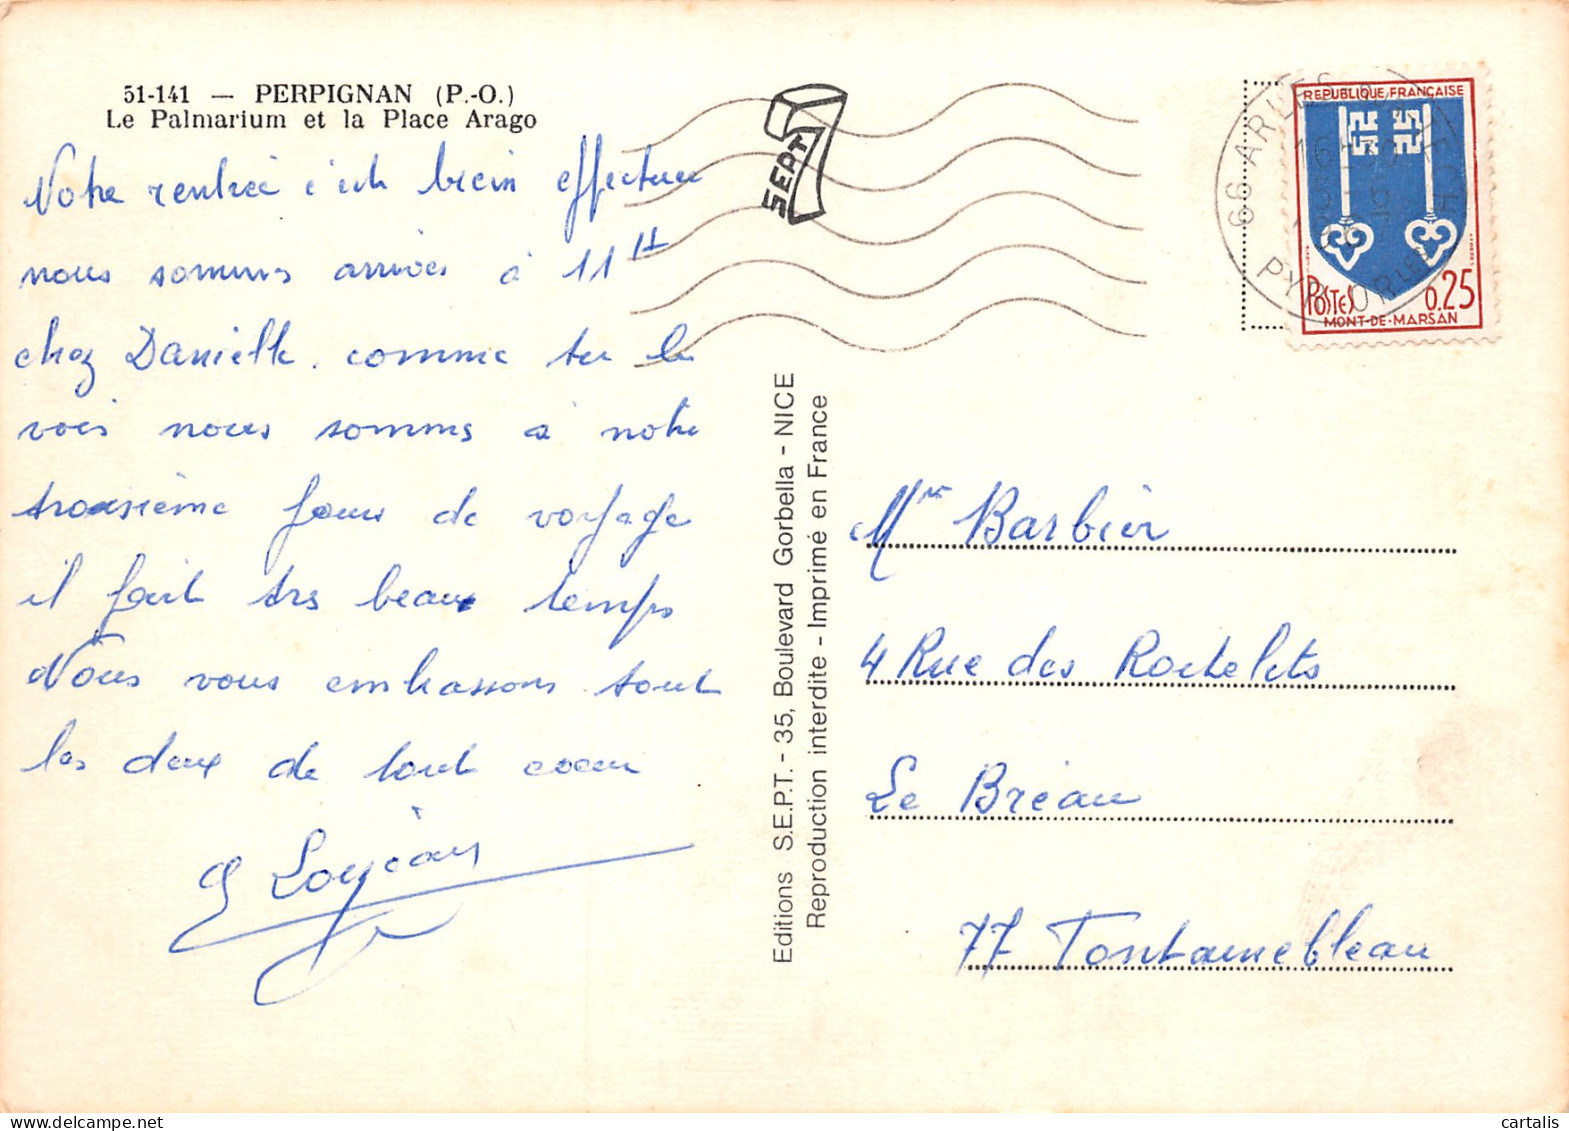 51-141 — PERPIGNAN (P.-O.)
Le Palmarium et la Place Arago
Notre rentrée c'est bien effectuee
nous sommes arrivés à 11 H
chez Danielle. comme tu le
vois nous sommes à notre
troisième jour de voyage
il fait tres beau temps
Nous vous embrassons tout
les deux de tout coeur
G Loyeau
SEPT
Editions S.E.P.T. - 35, Boulevard Gorbella - NICE
Reproduction interdite - Imprimé en France
66 ARLES
PYR. ORLES
REPUBLIQUE FRANÇAISE
POSTES 0,25
MONT-DE-MARSAN
Mme Barbier
4 Rue des Rochelets
Le Bréau
77 Fontainebleau
cartalis